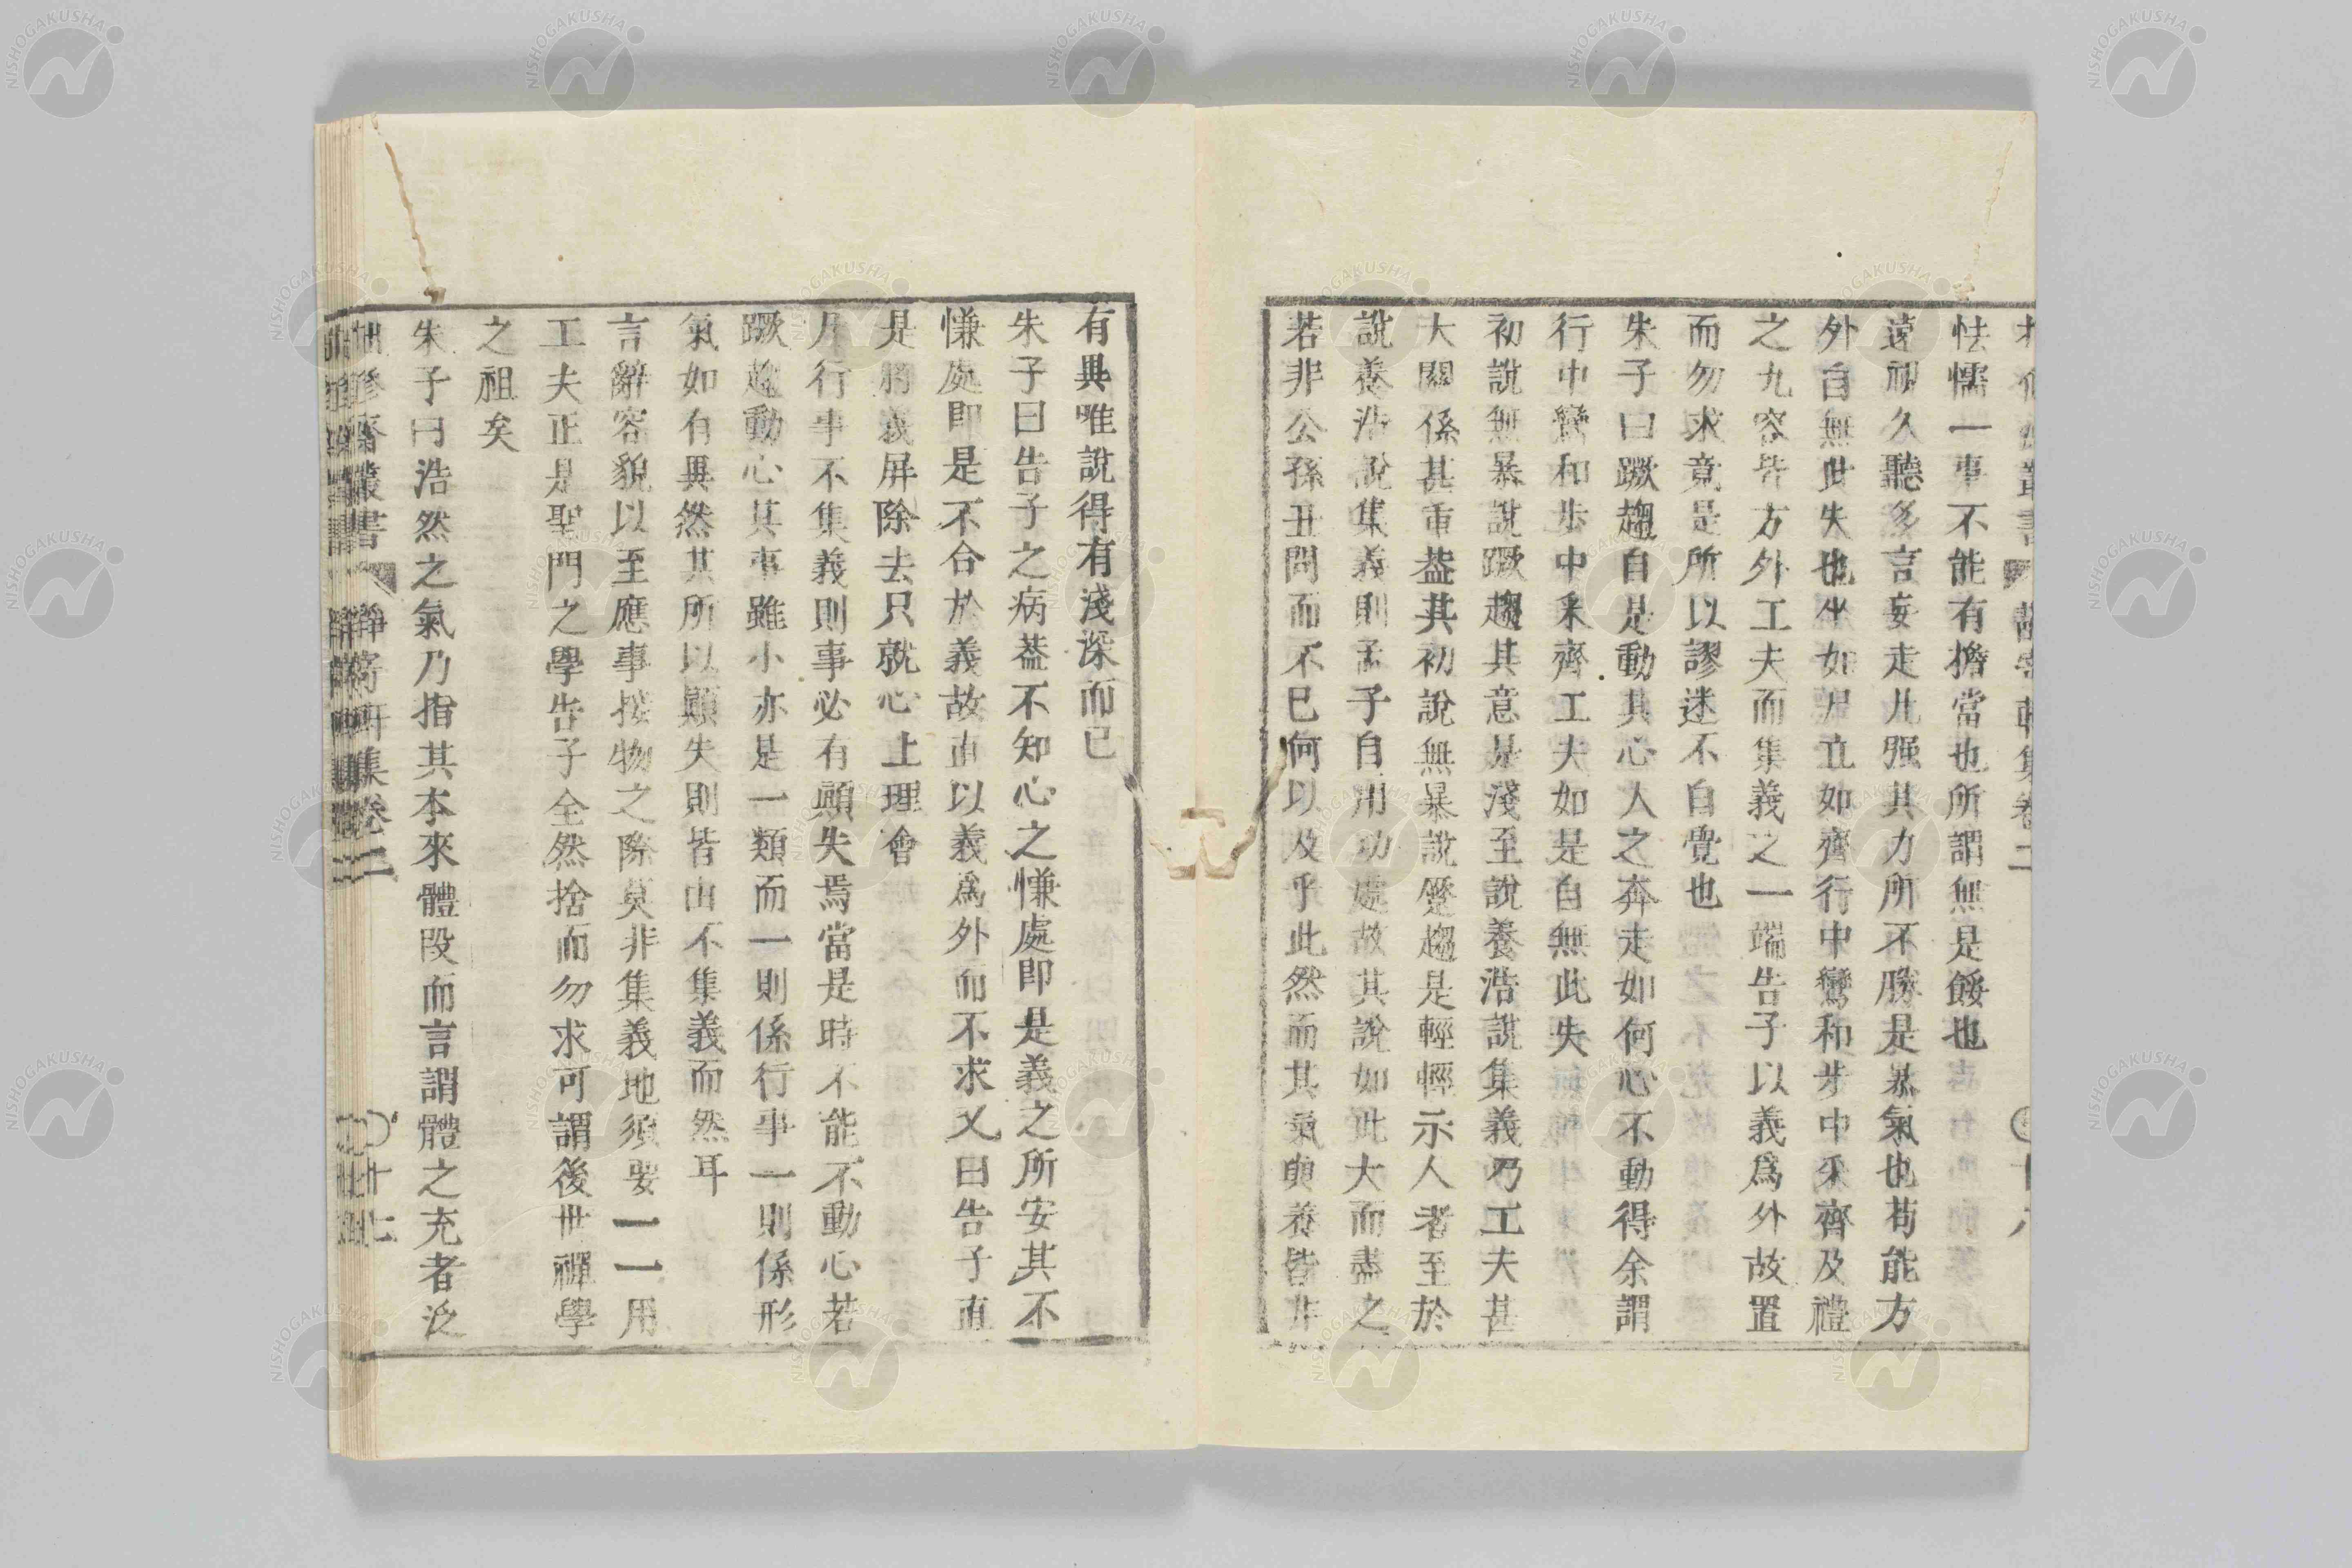 怯懦一事不能有擔當也所謂無是餒也
遠視久聽多言妄走凡强其力所不勝是暴氣也苟能方
外自無此失也坐如尸立如齊行中鸞和步中采齊及禮
之九容皆方外工夫而集義之一端告子以義爲外故置
而勿求竟是所以謬迷不自覺也
朱子曰蹶趨自是動其心人之奔走如何心不動得余謂
行中鸞和步中采齊工夫如是自無此失
初說無暴說蹶趨其意是淺至說養浩說集義乃工夫甚
大關係甚重葢其初說無暴說蹶趨是輕輕示人者至於
說養浩說集義則孟子自用功處故其說如此大而盡之
若非公孫丑問而不已何以及乎此然而其氣與養皆非
有異唯說得有淺深而已
朱子曰告子之病葢不知心之慊處即是義之所安其不
慊處即是不合於義故直以義爲外而不求又曰告子直
是將義屏除去只就心上理會
凡行事不集義則事必有顧失焉當是時不能不動心若
蹶趨動心其事雖小亦是一類而一則係行事一則係形
氣如有異然其所以顚失則皆由不集義而然耳
言辭容貌以至應事接物之際莫非集義地須要一一用
工夫正是聖門之學告子全然捨而勿求可謂後世禪學
之祖矣
朱子曰浩然之氣乃指其本來體段而言謂體之充者泛
叢書 集卷二 十七
NISHOGAKUSHA